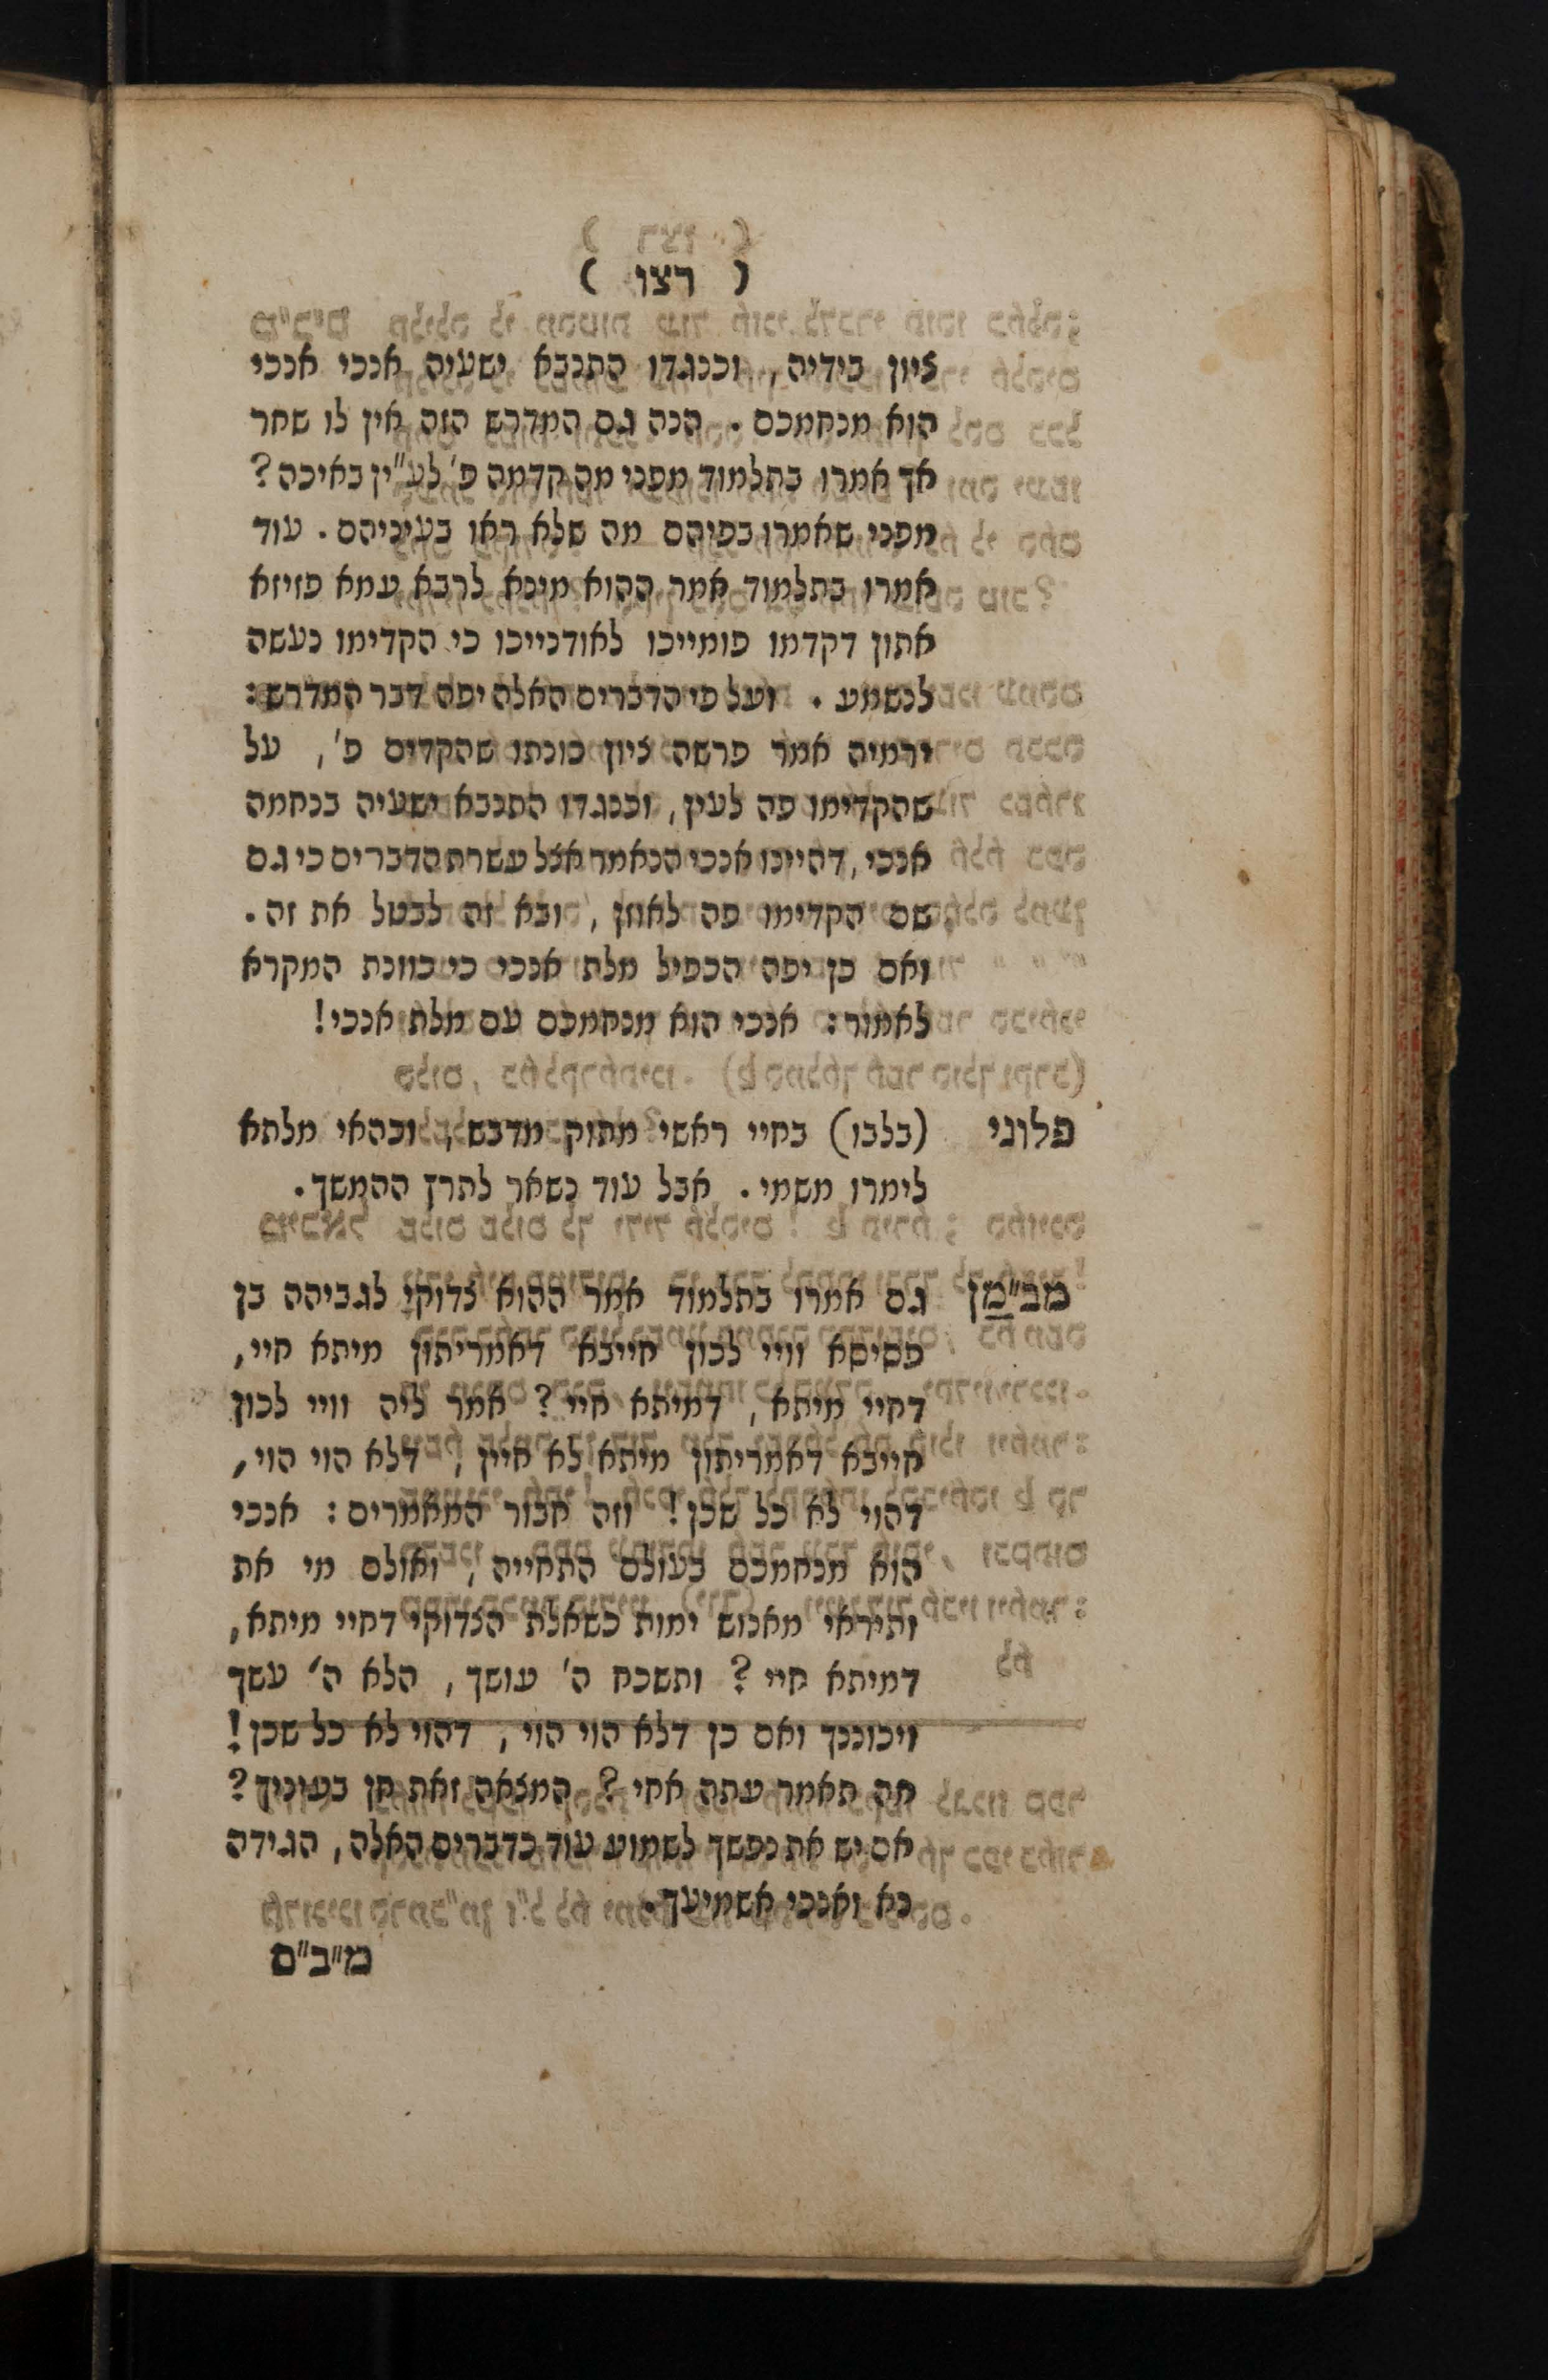 ( רצו )
ציון בידיה, וכנגדו התנבא ישעיה אנכי אנכי
הוא מנחמכם. הנה גם המדרש הזה אין לו שחר
אך אמרו בתלמוד מפני מה קדמה פ' לע"ין באיכה?
מפני שאמרו בפיהם מה שלא ראו בעיניהם. עוד
אמרו בתלמוד אמר ההוא מינא לרבא עמא פזיזא
אתון דקדמו פומייכו לאודנייכו כי הקדימו נעשה
לנשמע. ועל פי הדברים האלה יפה דבר המדרש:
ירמיה אמר פרשה ציון כונתו שהקדים פ', על
שהקדימו פה לעין, וכנגדו התנבא ישעיה בנחמה
אנכי, דהיינו אנכי הנאמר אצל עשרת הדברים כי גם
שם הקדימו פה לאוזן, ובא זה לבטל את זה.
ואם כן יפה הכפיל מלת אנכי כי כוונת המקרא
לאמור: אנכי הוא מנחמכם עם מלת אנכי!
פלוני (בלבו) בחיי ראשי מתוק מדבש, וכהאי מלתא
לימרו משמי. אבל עוד נשאר לתרץ ההמשך.
מב"מן גם אמרו בתלמוד אמר ההוא צדוקי לגביהה בן
פסיסא וויי לכון חייבא דאמריתון מיתא חיי,
דחיי מיתא, דמיתא חיי? אמר ליה וויי לכון
חייבא דאמריתון מיתא לא חיין, דלא הוי הוי,
דהוי לא כל שכן! וזה חבור המאמרים: אנכי
הוא מנחמכם בעולם התחייה, ואולם מי את
ותיראי מאנוש ימות כשאלת הצדוקי דחיי מיתא,
דמיתא חיי? ותשכח ה' עושך, הלא ה' עשך
ויכוננך ואם כן דלא הוי הוי, דהוי לא כל שכן!
מה תאמר עתה אחי? המצאה זאת חן בעיניך?
אם יש את נפשך לשמוע עוד כדברים האלה, הגידה
נא ואנכי אשמיעך.
מ"ב"ם